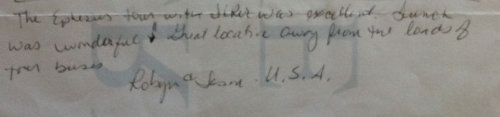 The Ephesus tour with was excellent. Lunch
was wonderful & great location away from the loads of
tour buses
Robyn U.S.A.